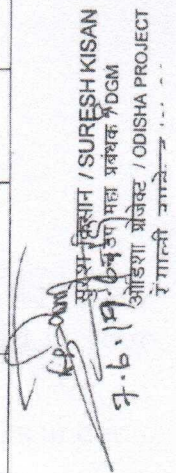 सुरेश किसान / SURESH KISAN
उप महा प्रबंधक / DGM
ओडिशा प्रोजेक्ट / ODISHA PROJECT
रेंगाली
7.6.19